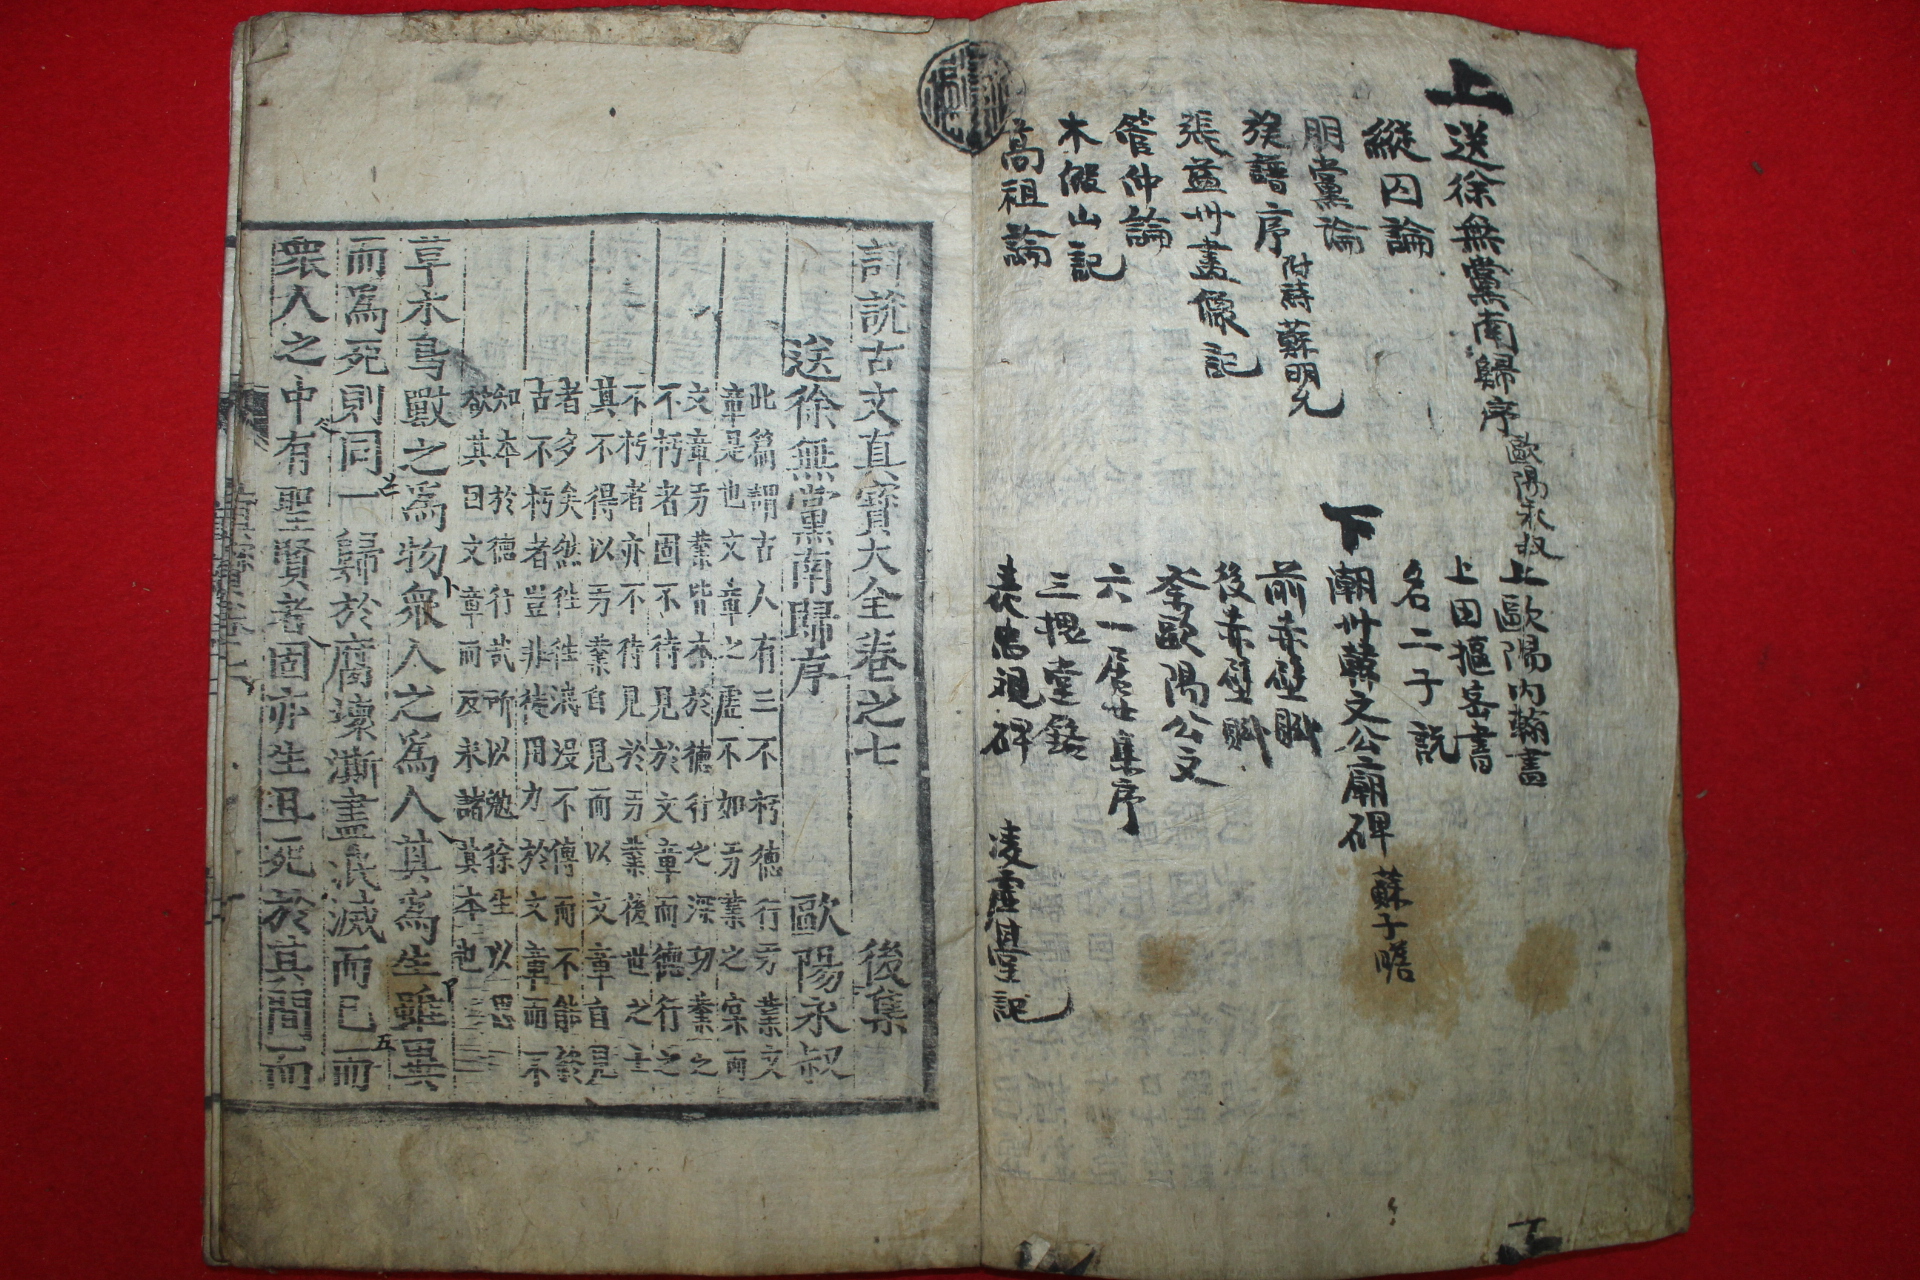 上
送徐無黨南歸序 歐陽永叔
縱囚論
朋黨論
族譜序 附詩 蘇明允
張益州畫像記
管仲論
木假山記
高祖論
上歐陽內翰書
上田樞密書
名二子說
下
潮州韓文公廟碑 蘇子瞻
前赤壁賦
後赤壁賦
祭歐陽公文
六一居士集序
三槐堂銘
表忠觀碑
凌虛臺記
詳說古文真寶大全卷之七 後集
送徐無黨南歸序 歐陽永叔
此篇謂古人有三不朽德行事業文
章是也文章之虛不如事業之實而
文章事業皆本於德行之深功業之
不朽者固不待見於文章而德行之
不朽者亦不待見於事業後世之士
其不得以事業自見而以文章自見
者多矣然往往泯沒不傳而不能於
古不朽者豈非徒用力於文章而不
知本於德行哉所以勉徐生以思
欲其因文章而反求諸其本也
草木鳥獸之爲物衆人之爲人其爲生雖異
而爲死則同一歸於腐壞澌盡泯滅而已而
衆人之中有聖賢者固亦生且死於其間而